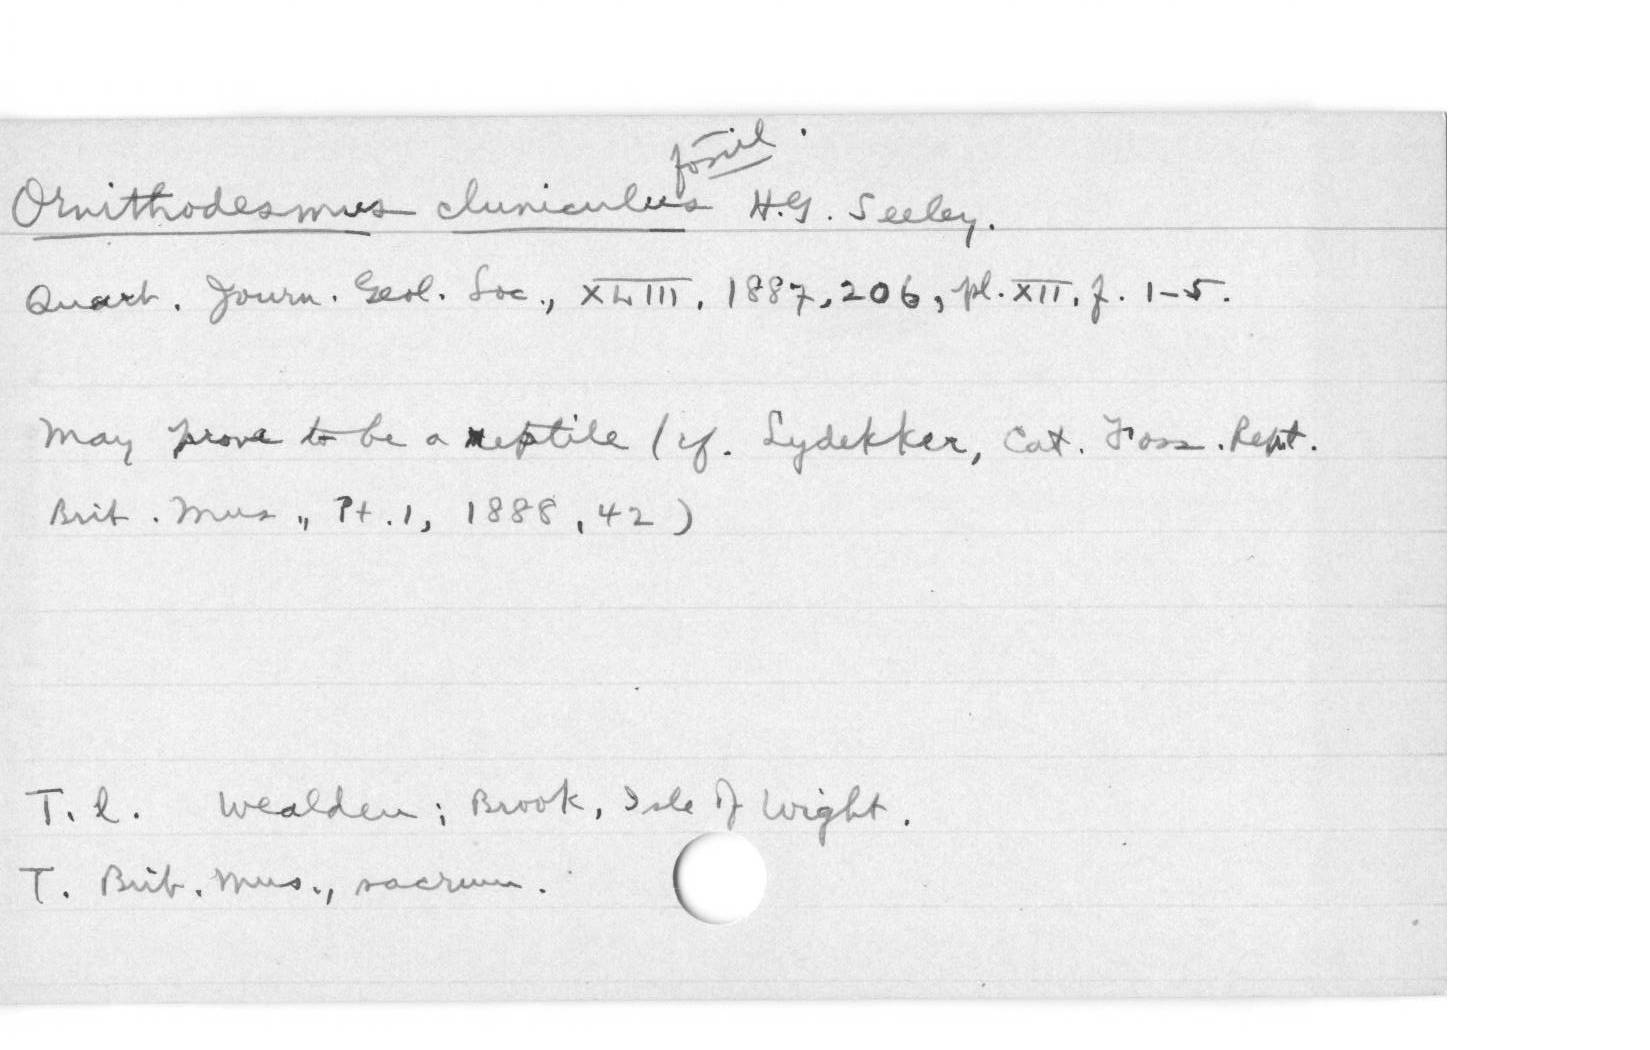 fossil.
Ornithodesmus cluniculus H.G. Seeley.
Quart. Journ. Geol. Soc., XLIII, 1887, 206, pl. XII, f. 1-5.
May prove to be a reptile (cf. Lydekker, Cat. Foss. Rept.
Brit. Mus., Pt. 1, 1888, 42)
T. l. Wealden; Brook, Isle of Wight.
T. Brit. Mus., sacrum.